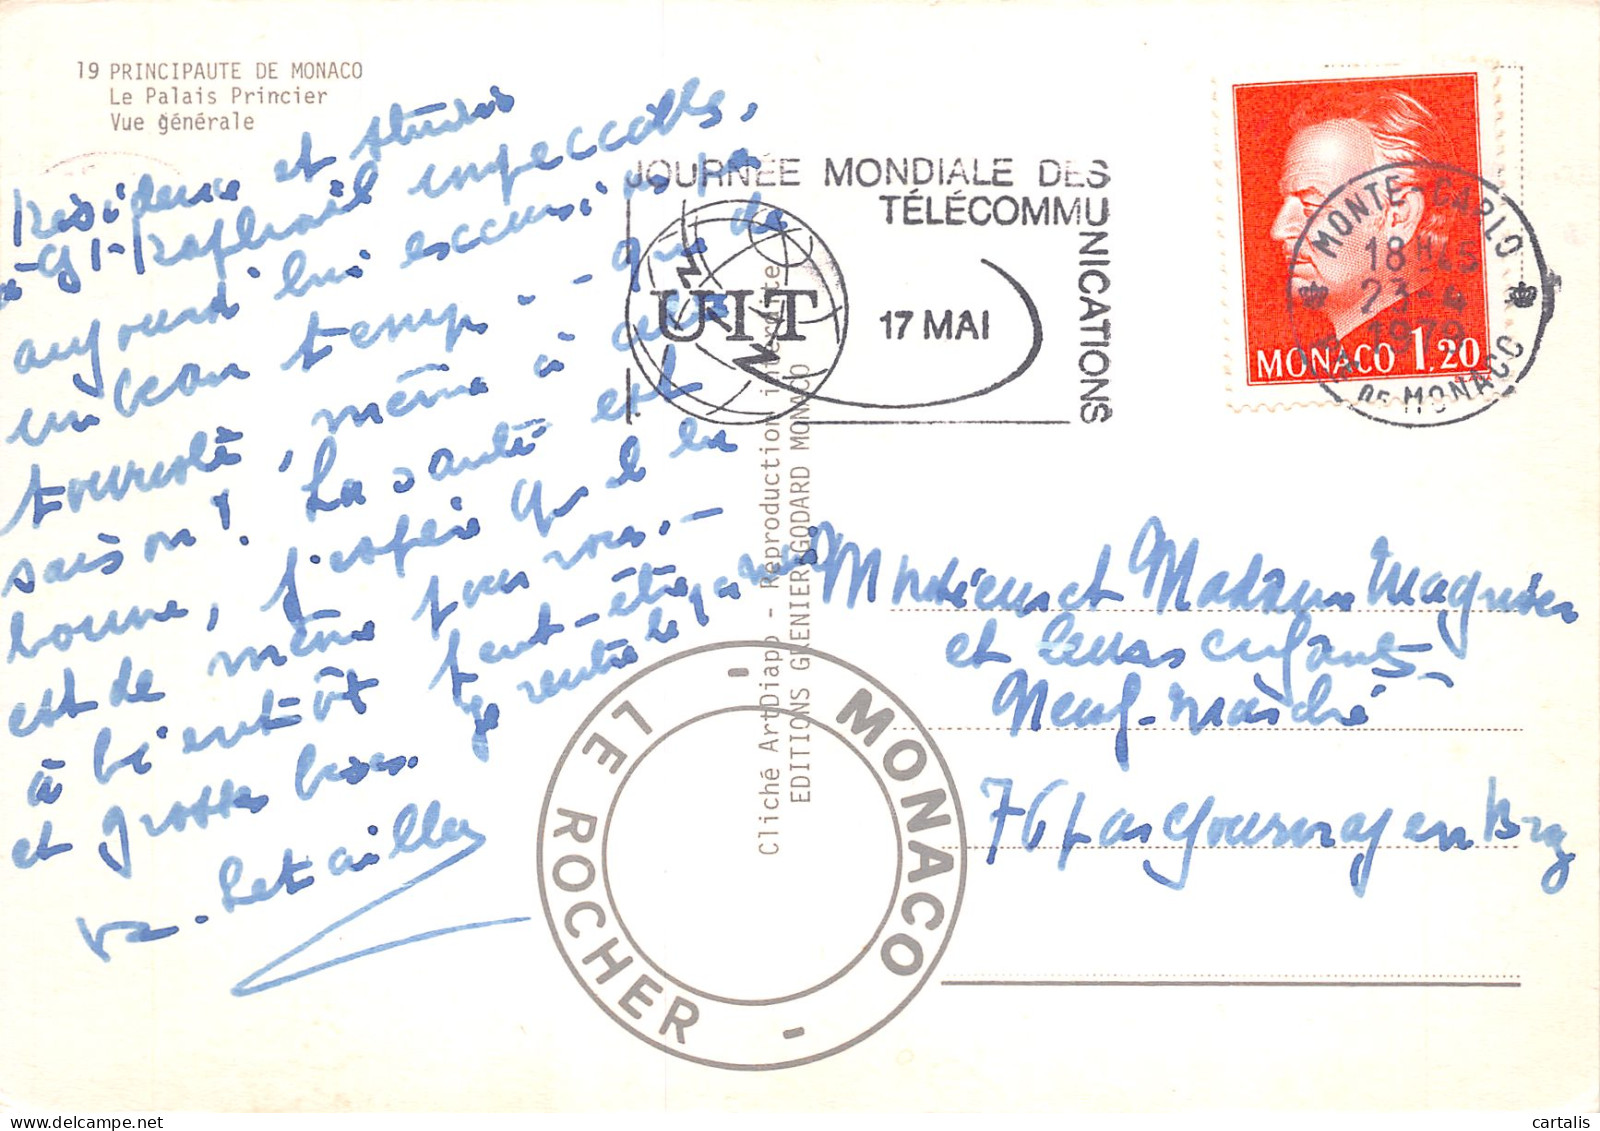 19 PRINCIPAUTE DE MONACO
Le Palais Princier
Vue générale
Résidence et studio
à St-Raphaël impeccable,
aujourd'hui excursion
un beau temps - que de
touristes, même à cette
saison! La santé est
bonne, j'espère qu'il en
est de même pour vous. -
à bientôt peut-être
je rentre le
et grosses bises.
Letailleur
JOURNÉE MONDIALE DES
TÉLÉCOMMUNICATIONS
UIT
17 MAI
MONTE-CARLO
18H45
23-4
1979
PTE DE MONACO
MONACO 1,20
Cliché ArtDiapp - Reproduction interdite
EDITIONS GRENIER GODARD MONACO
MONACO - LE ROCHER -
Monsieur et Madame Magnier
et leurs enfants
Neuf-Marché
76 par Gournay en Bray
cartalis